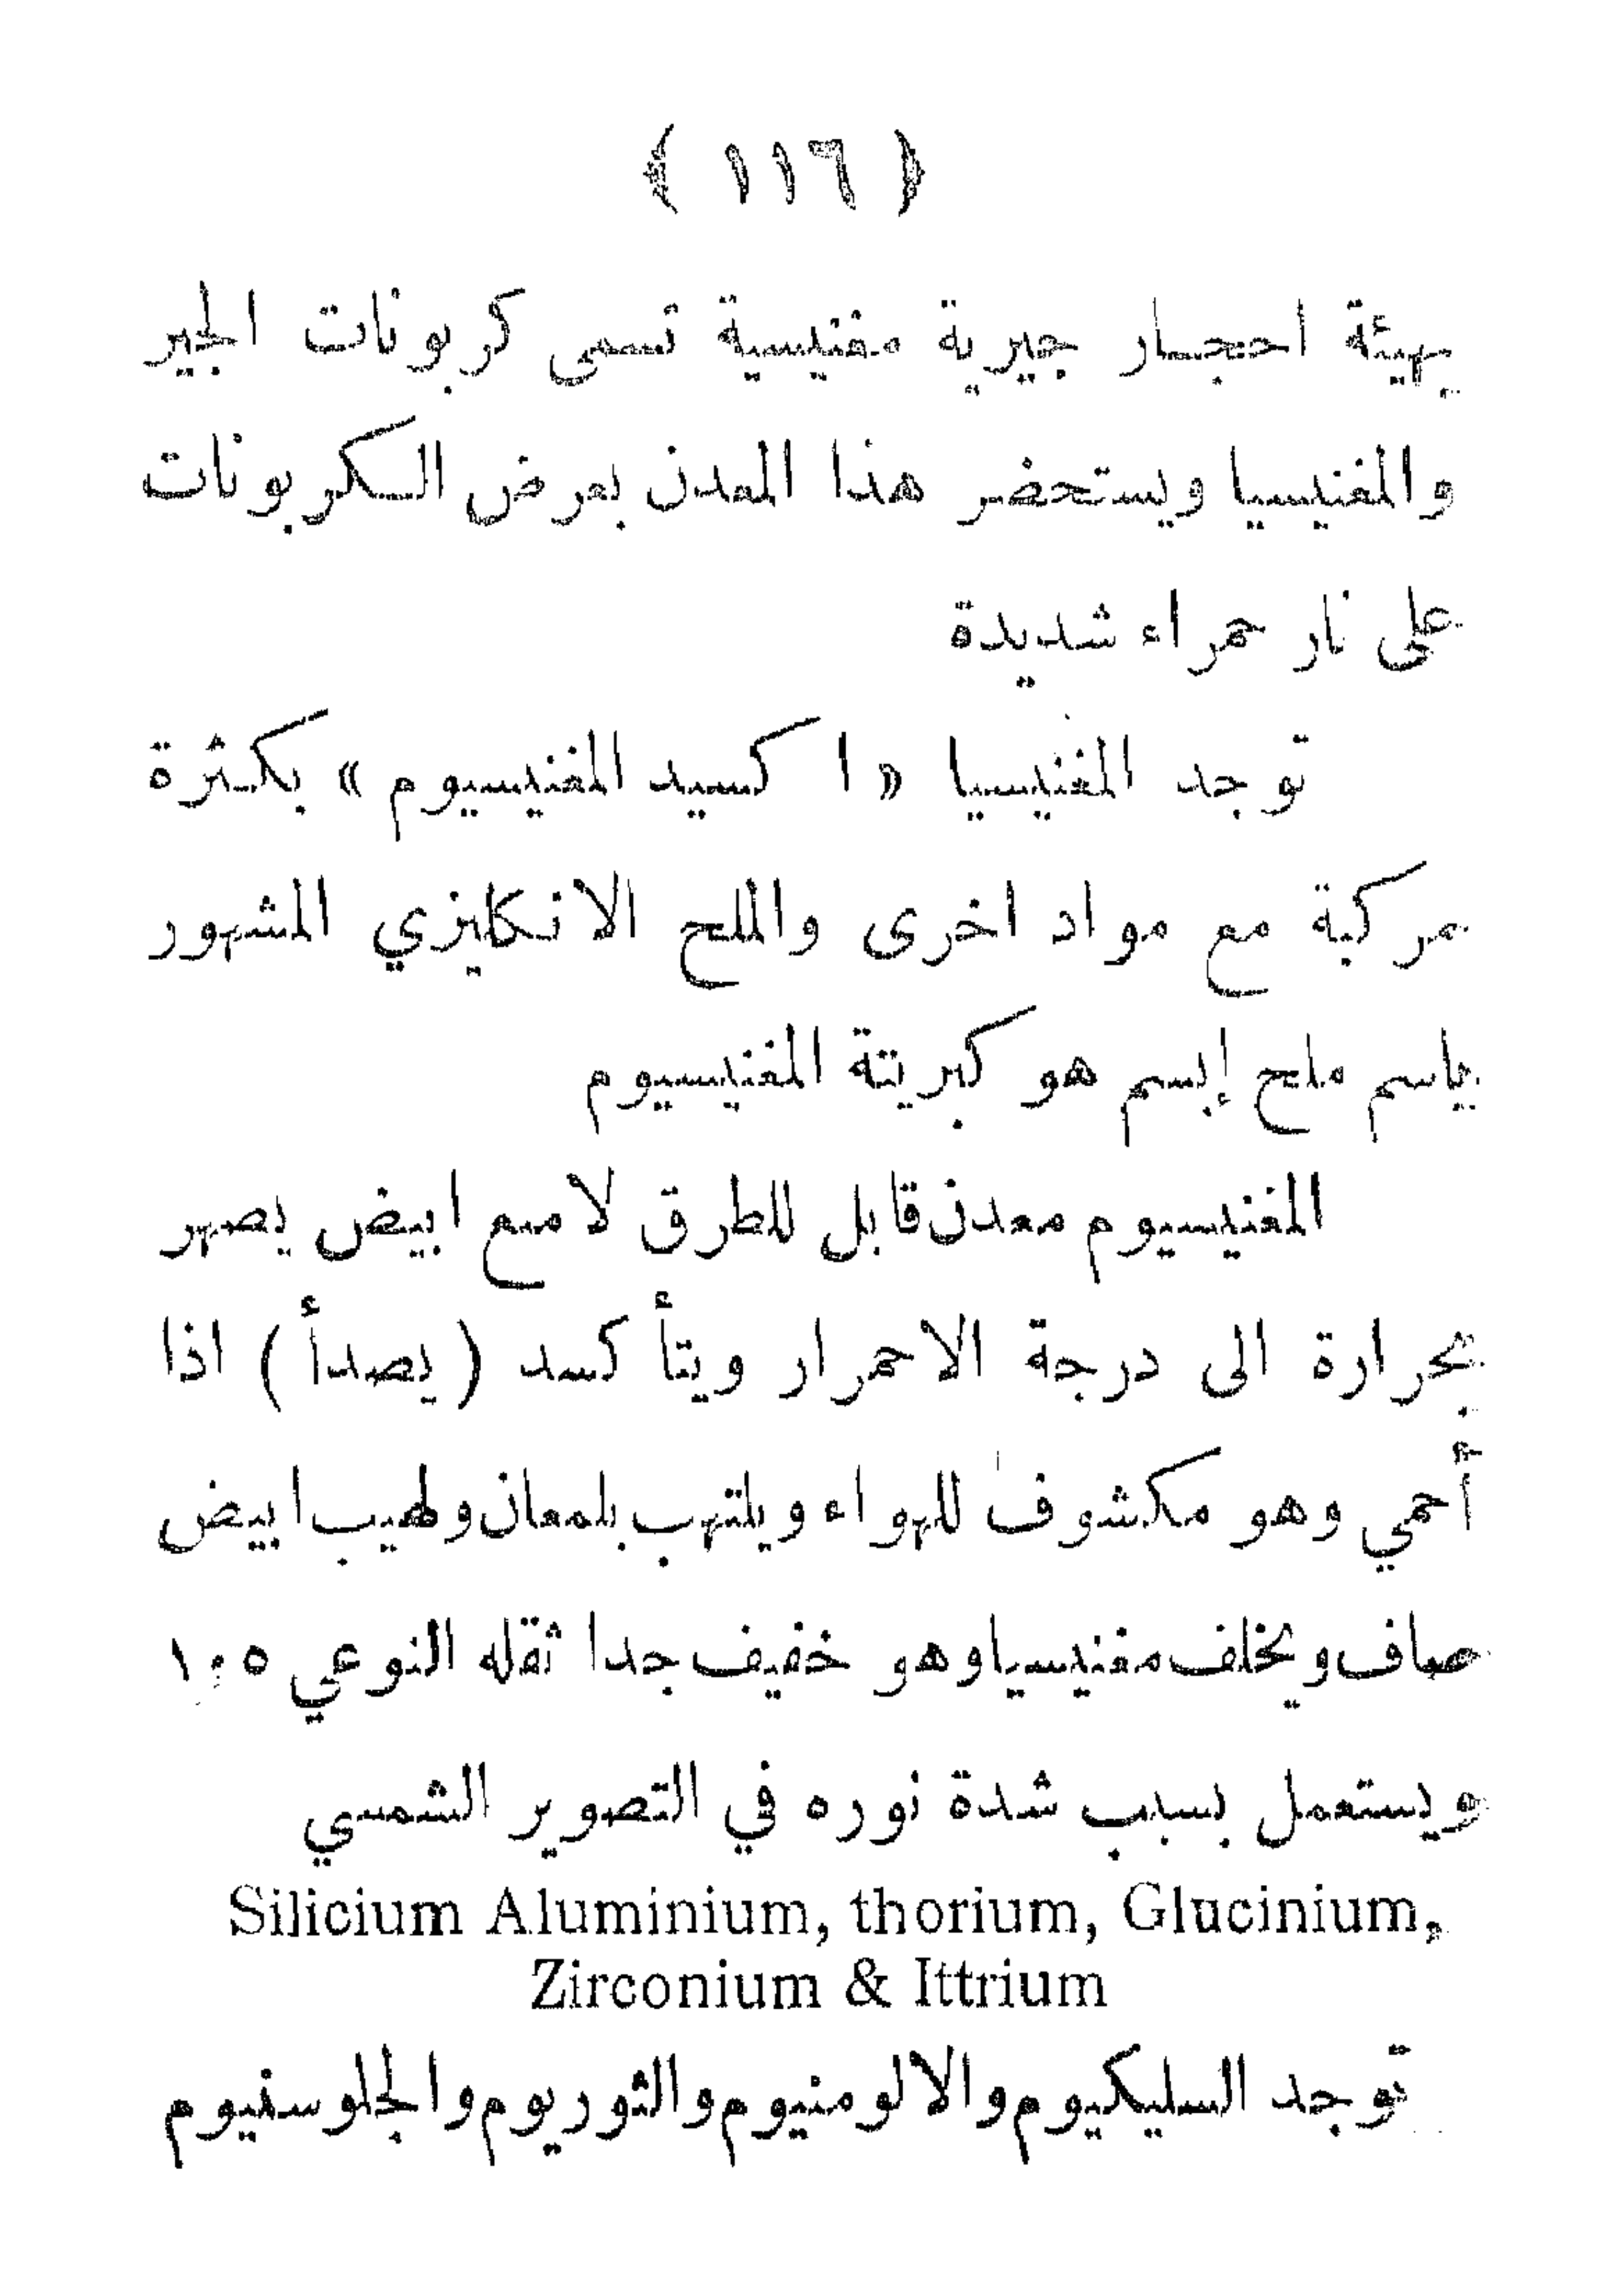 ﴿ ١١٦ ﴾
بهيئة احجار جيرية مغنيسية تسمى كربونات الجير
والمغنيسيا ويستحضر هذا المعدن بعرض الكربونات
على نار حمراء شديدة
توجد المغنيسيا « اكسيد المغنيسيوم » بكثرة
مركبة مع مواد اخرى والملح الانكليزي المشهور
باسم ملح إبسم هو كبريتة المغنيسيوم
المغنيسيوم معدن قابل للطرق لامع ابيض يصهر
بحرارة الى درجة الاحمرار ويتأكسد ( يصدأ ) اذا
أحمي وهو مكشوف للهواء ويلتهب بلمعان ولهيب ابيض
صاف ويخلف مغنيسيا وهو خفيف جدا ثقله النوعي
ويستعمل بسبب شدة نوره في التصوير الشمسي
Silicium Aluminium, thorium, Glucinium,
Zirconium & Ittrium
توجد السليكيوم والالومنيوم والثوريوم والجلوسنيوم